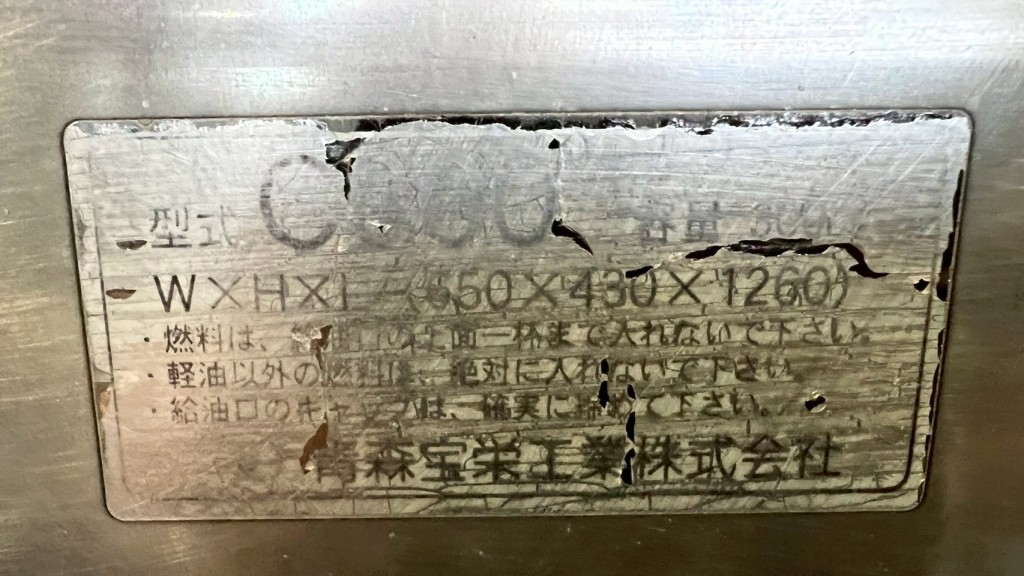 型式 容量
W×H×L (650×430×1260)
・燃料は、給油口の上面一杯まで入れないで下さい。
・軽油以外の燃料は、絶対に入れないで下さい。
・給油口のキャップは、確実に締めて下さい。
青森宝栄工業株式会社